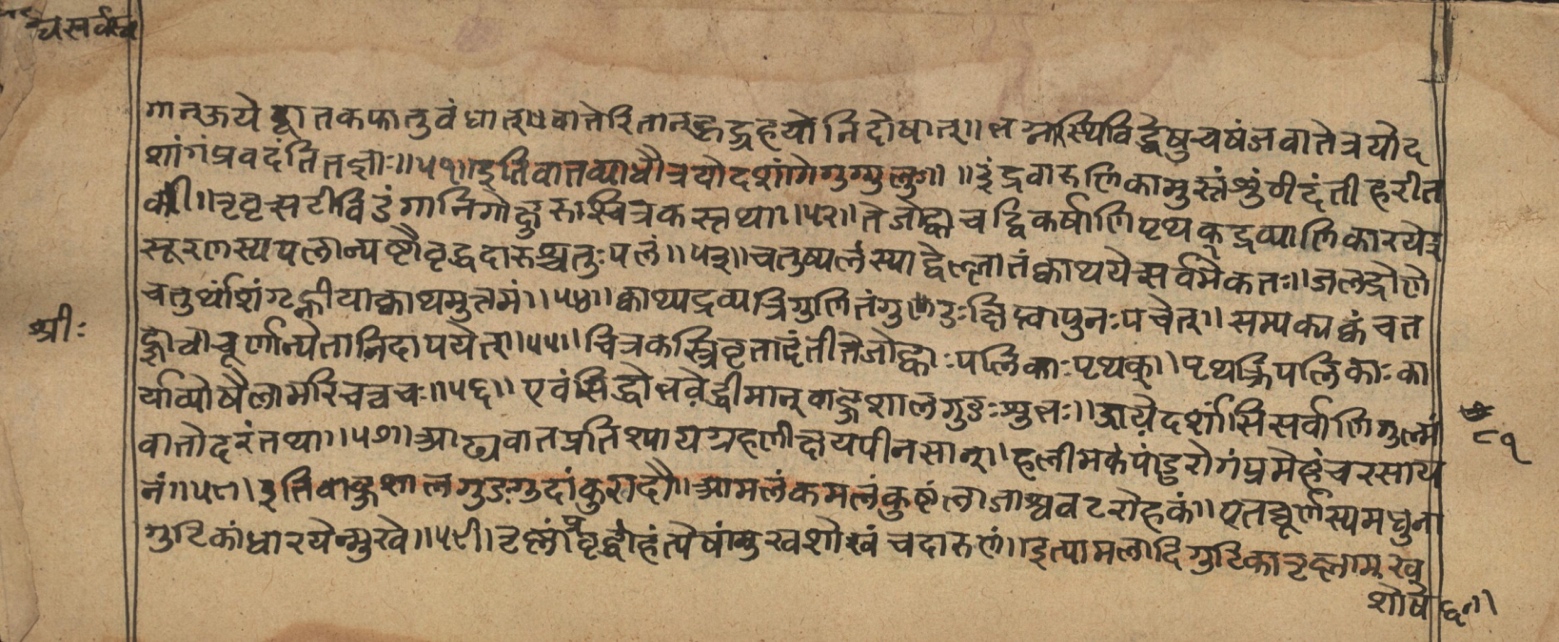 द्यसर्वस्व
गान्जयेद्वातकफानुबंधान्श्चवातेरितान्हृद्ग्रहयोनिदोषान्॥भग्नास्थिविद्धेषुचषंजवातेत्रयोद
शांगंप्रवदंतितज्ज्ञाः॥५१॥इतिवातव्याधौत्रयोदशांगोगुग्गुलुः॥॥इंद्रवारुणिकामुस्तंशुंठीदंतीहरीत
की॥त्रृवृत्सटीविडंगानिगोक्षुरुश्चित्रकस्तथा॥५२॥तेजोह्वाचद्विकर्षाणिपृथक्द्रव्याणिकारयेत्
सूरणस्यपलान्यष्टौवृद्धदारुश्चतुःपलं॥५३॥चतुष्पलंस्याद्भेल्लातंक्वाथयेत्सर्वमेकतः॥जलद्रोणे
चतुर्थांशंगृह्णीयात्क्वाथमुत्तमं॥५४॥क्वाथ्यद्रव्यत्रिगुणितंगुडंक्षिप्त्वापुनःपचेत्॥सम्यक्पक्वंचत
द्ज्ञात्वाचूर्णान्येतानिदापयेत्॥५५॥चित्रकस्त्रिवृतादंतीतेजोह्वाःपलिकाःपृथक्॥पृथक्त्रिपलिकाःका
र्याव्योषैलामरिचत्वचः॥५६॥एवंसिद्धोभवेद्धीमान्बाहुशालगुडःशुभः॥जयेदर्शांसिसर्वाणिगुल्मं
वातोदरंतथा॥५७॥आढ्यवातप्रतिश्यायग्रहणीक्षयपीनसान्॥हलीमकंपांडुरोगंप्रमेहंचरसाय
नं॥५८॥इतिबाहुशालगुडगुदांकुरादौ॥आमलंकमलंकुष्ठंलाजाश्चवटरोहकं॥एतच्चूर्णस्यमधुना
गुटिकांधारयेन्मुखे॥५९॥तृष्णांप्रवृद्धांहंत्येषांमुखशोखंचदारुणं॥इत्यामलादिगुटिकातृष्णामुख
शोषे ६०।
श्रीः
८१